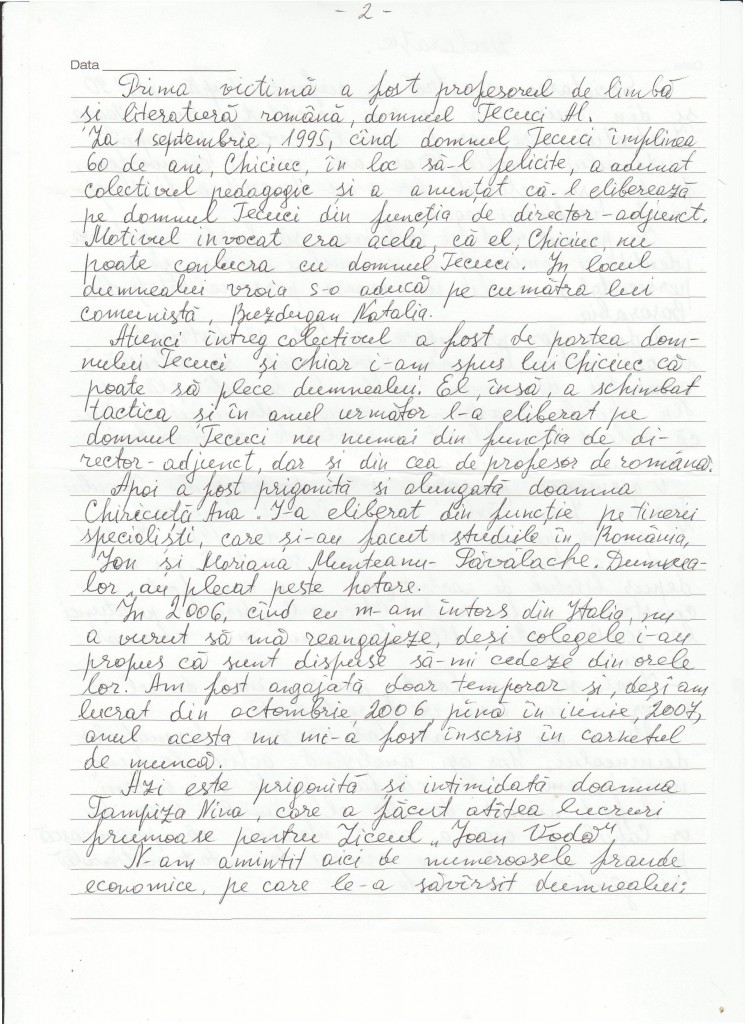 - 2 -
Data
Prima victimă a fost profesorul de limbă
si literatură română, domnul Tecuci Al.
La 1 septembrie, 1995, cînd domnul Tecuci împlinea
60 de ani, Chiciuc, în loc să-l felicite, a adunat
colectivul pedagogic și a anunțat că-l eliberează
pe domnul Tecuci din funcția de director-adjunct.
Motivul invocat era acela, că el, Chiciuc, nu
poate conlucra cu domnul Tecuci. In locul
dumnealui vroia s-o aducă pe cumătra lui
comunistă, Buzdugan Natalia.
Atunci întreg colectivul a fost de partea dom-
nului Tecuci și chiar i-am spus lui Chiciuc că
poate să plece dumnealui. El, însă, a schimbat
tactica și în anul următor l-a eliberat pe
domnul Tecuci nu numai din funcția de di-
rector-adjunct, dar și din cea de profesor de română.
Apoi a fost prigonită si alungată doamna
Chiricuță Ana. I-a eliberat din funcție pe tinerii
specialiști, care și-au facut studiile în România,
Ion și Mariana Munteanu-Păvălache. Dumnea-
lor au plecat peste hotare.
In 2006, cînd eu m-am întors din Italia, nu
a vurut să mă reangajeze, deși colegele i-au
propus că sunt dispuse să-mi cedeze din orele
lor. Am fost angajată doar temporar si, deși am
lucrat din octombrie, 2006 pînă în iunie, 2007,
anul acesta nu mi-a fost înscris în carnetul
de muncă.
Azi este prigonită si intimidată doamna
Tampiza Nina, care a făcut atîtea lucruri
frumoase pentru Liceul „Ioan Vodă"
N-am amintit aici de numeroasele fraude
economice, pe care le-a săvîrsit dumnealui;